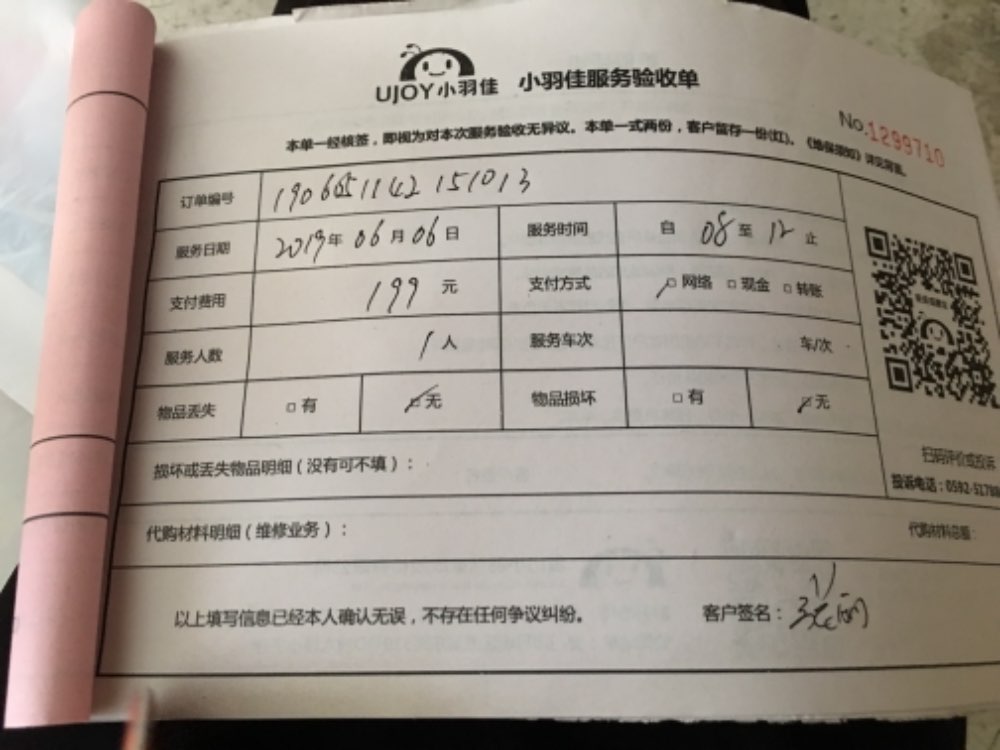 UJOY小羽佳 小羽佳服务验收单
No.1299710
本单一经核签，即视为对本次服务验收无异议。本单一式两份，客户留存一份(红)。《维保须知》详见背面。
订单编号
服务日期 2019年 06月 06日 服务时间 自 08 至 12 止
支付费用 199 元 支付方式 网络 现金 转账
服务人数 1人 服务车次 车/次
物品丢失 有 无 物品损坏 有 无
扫码评价或投诉
损坏或丢失物品明细（没有可不填）：
投诉电话：0592-5178
代购材料明细（维修业务）： 代购材料总额：
以上填写信息已经本人确认无误，不存在任何争议纠纷。 客户签名：